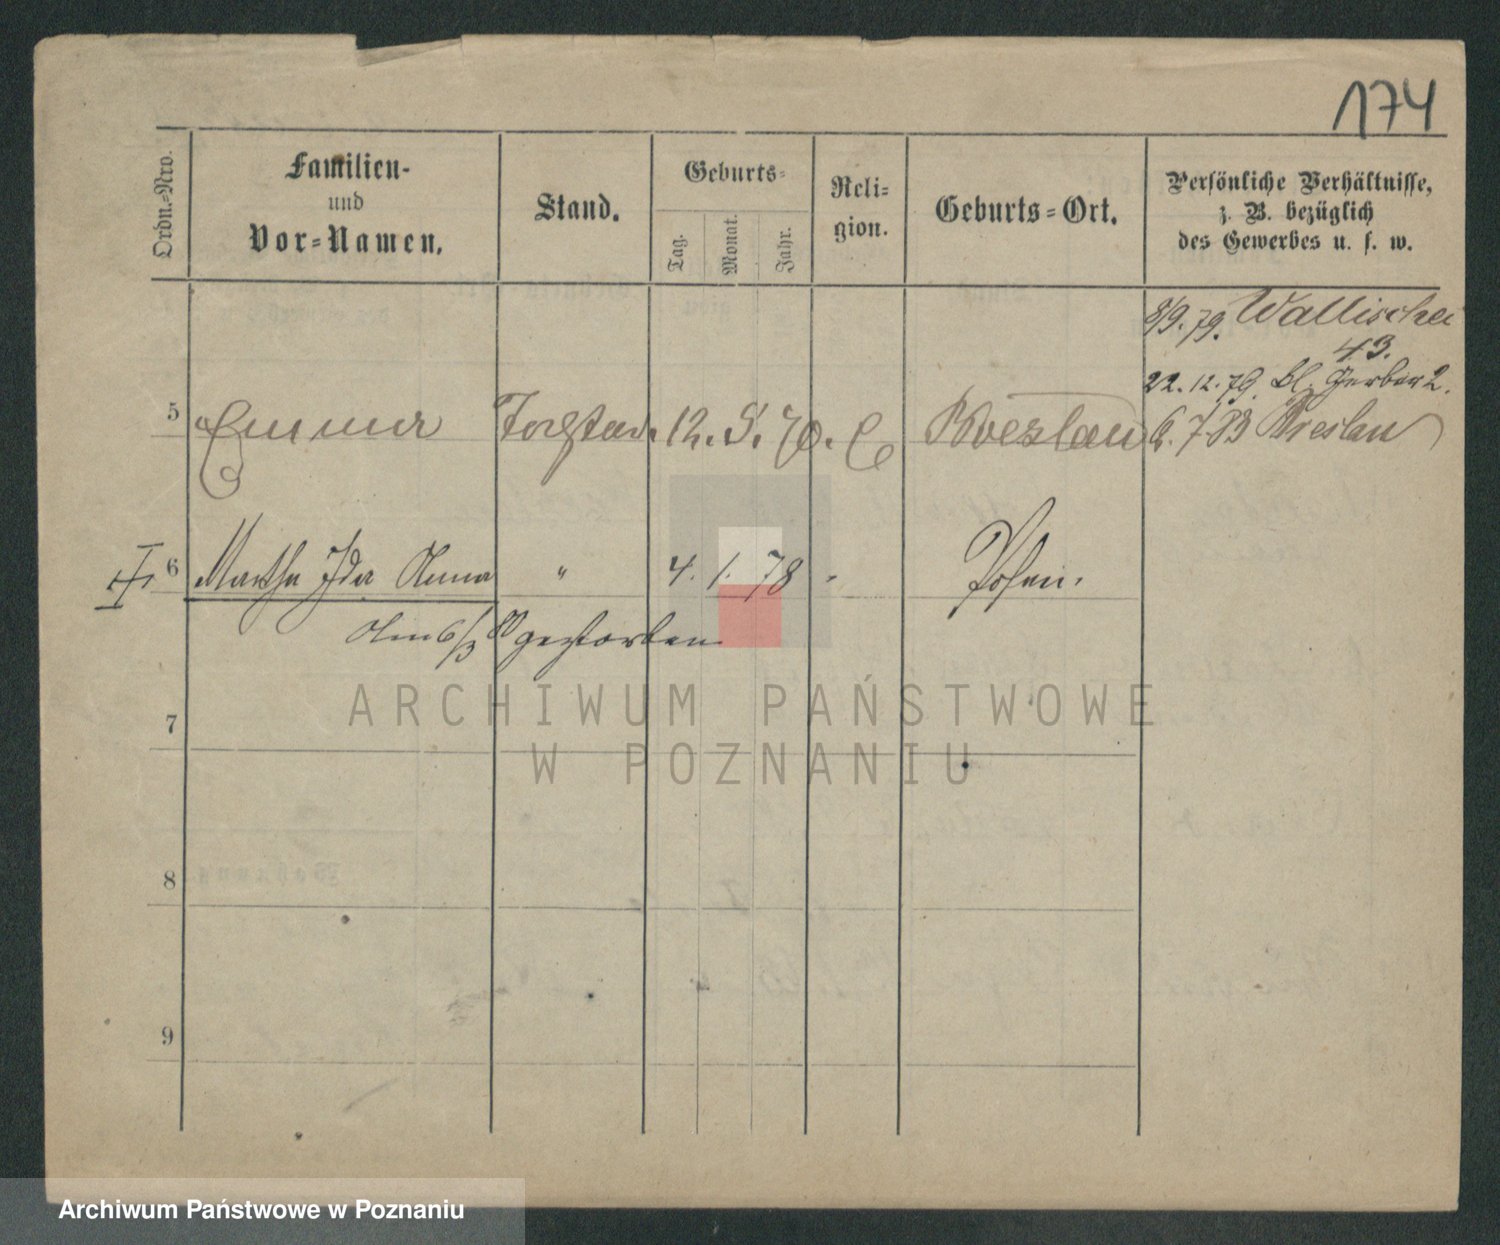 174
Ordn.-Nro.
Familien-
und
Vor-Namen.
Stand.
Geburts-
Tag.
Monat.
Jahr.
Reli-
gion.
Geburts-Ort.
Persönliche Verhältnisse,
z. B. bezüglich
des Gewerbes u. s. w.
8/9. 79. Wallischei
43.
22. 12. 79. Kl. Gerber 2.
5 Emma Tochter 12. 5. 70. E Breslau 6. 7 83 Breslau
6 Martha Ida Anna " 4. 1. 78 Posen.
Am 6/3 gestorben
7
8
9
ARCHIWUM PAŃSTWOWE
W POZNANIU
Archiwum Państwowe w Poznaniu